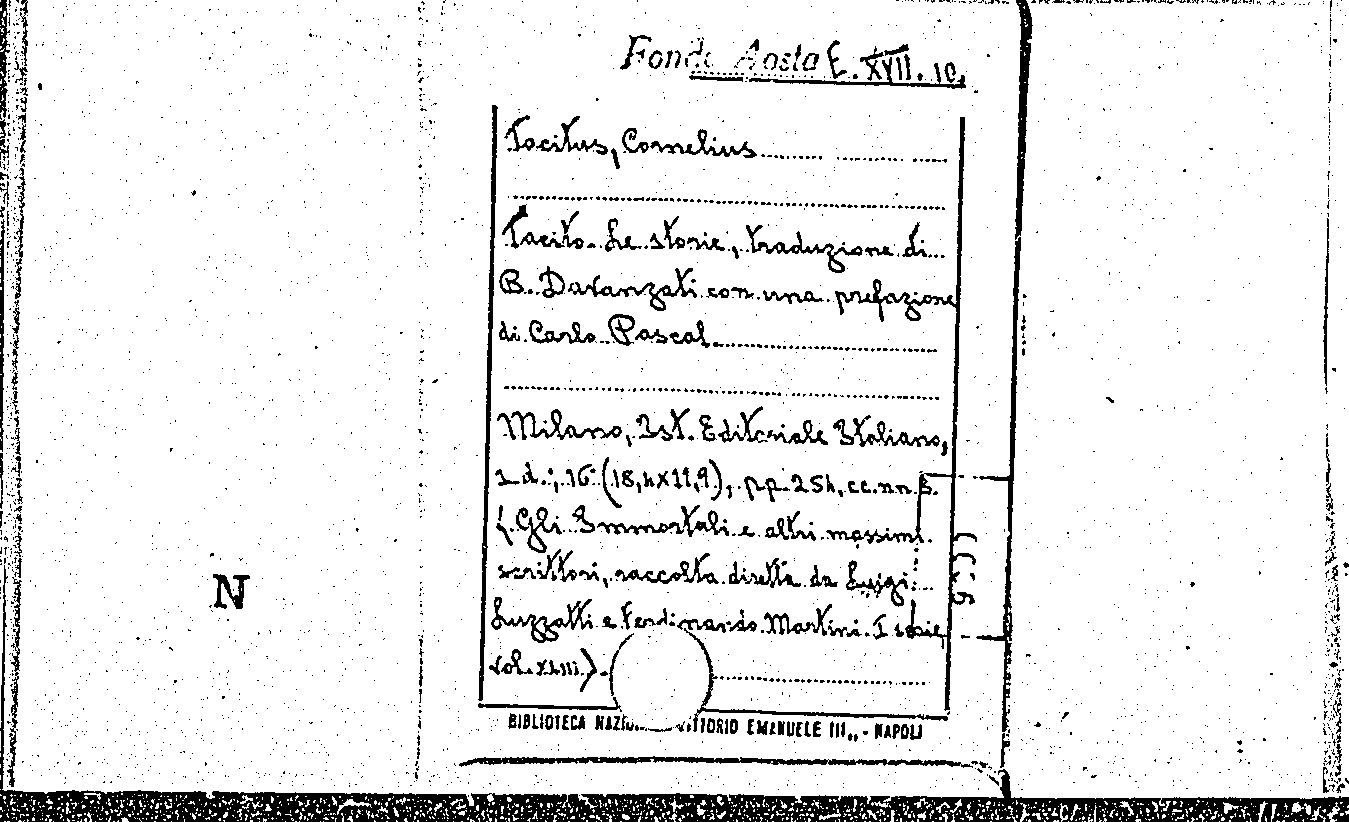 Fondo Aosta E. XVII. 10.
Tacitus, Cornelius
Tacito. Le storie, traduzione di
B. Davanzati con una prefazione
di Carlo Pascal.
Milano, Ist. Editoriale Italiano,
s. d., 16° (18,4x11,9), pp. 254, cc. nn. 3.
(Gli Immortali e altri massimi
scrittori, raccolta diretta da Luigi
Luzzatti e Ferdinando Martini. I serie,
vol. XLIII).
BIBLIOTECA NAZIO VITTORIO EMANUELE III,, - NAPOLI
N